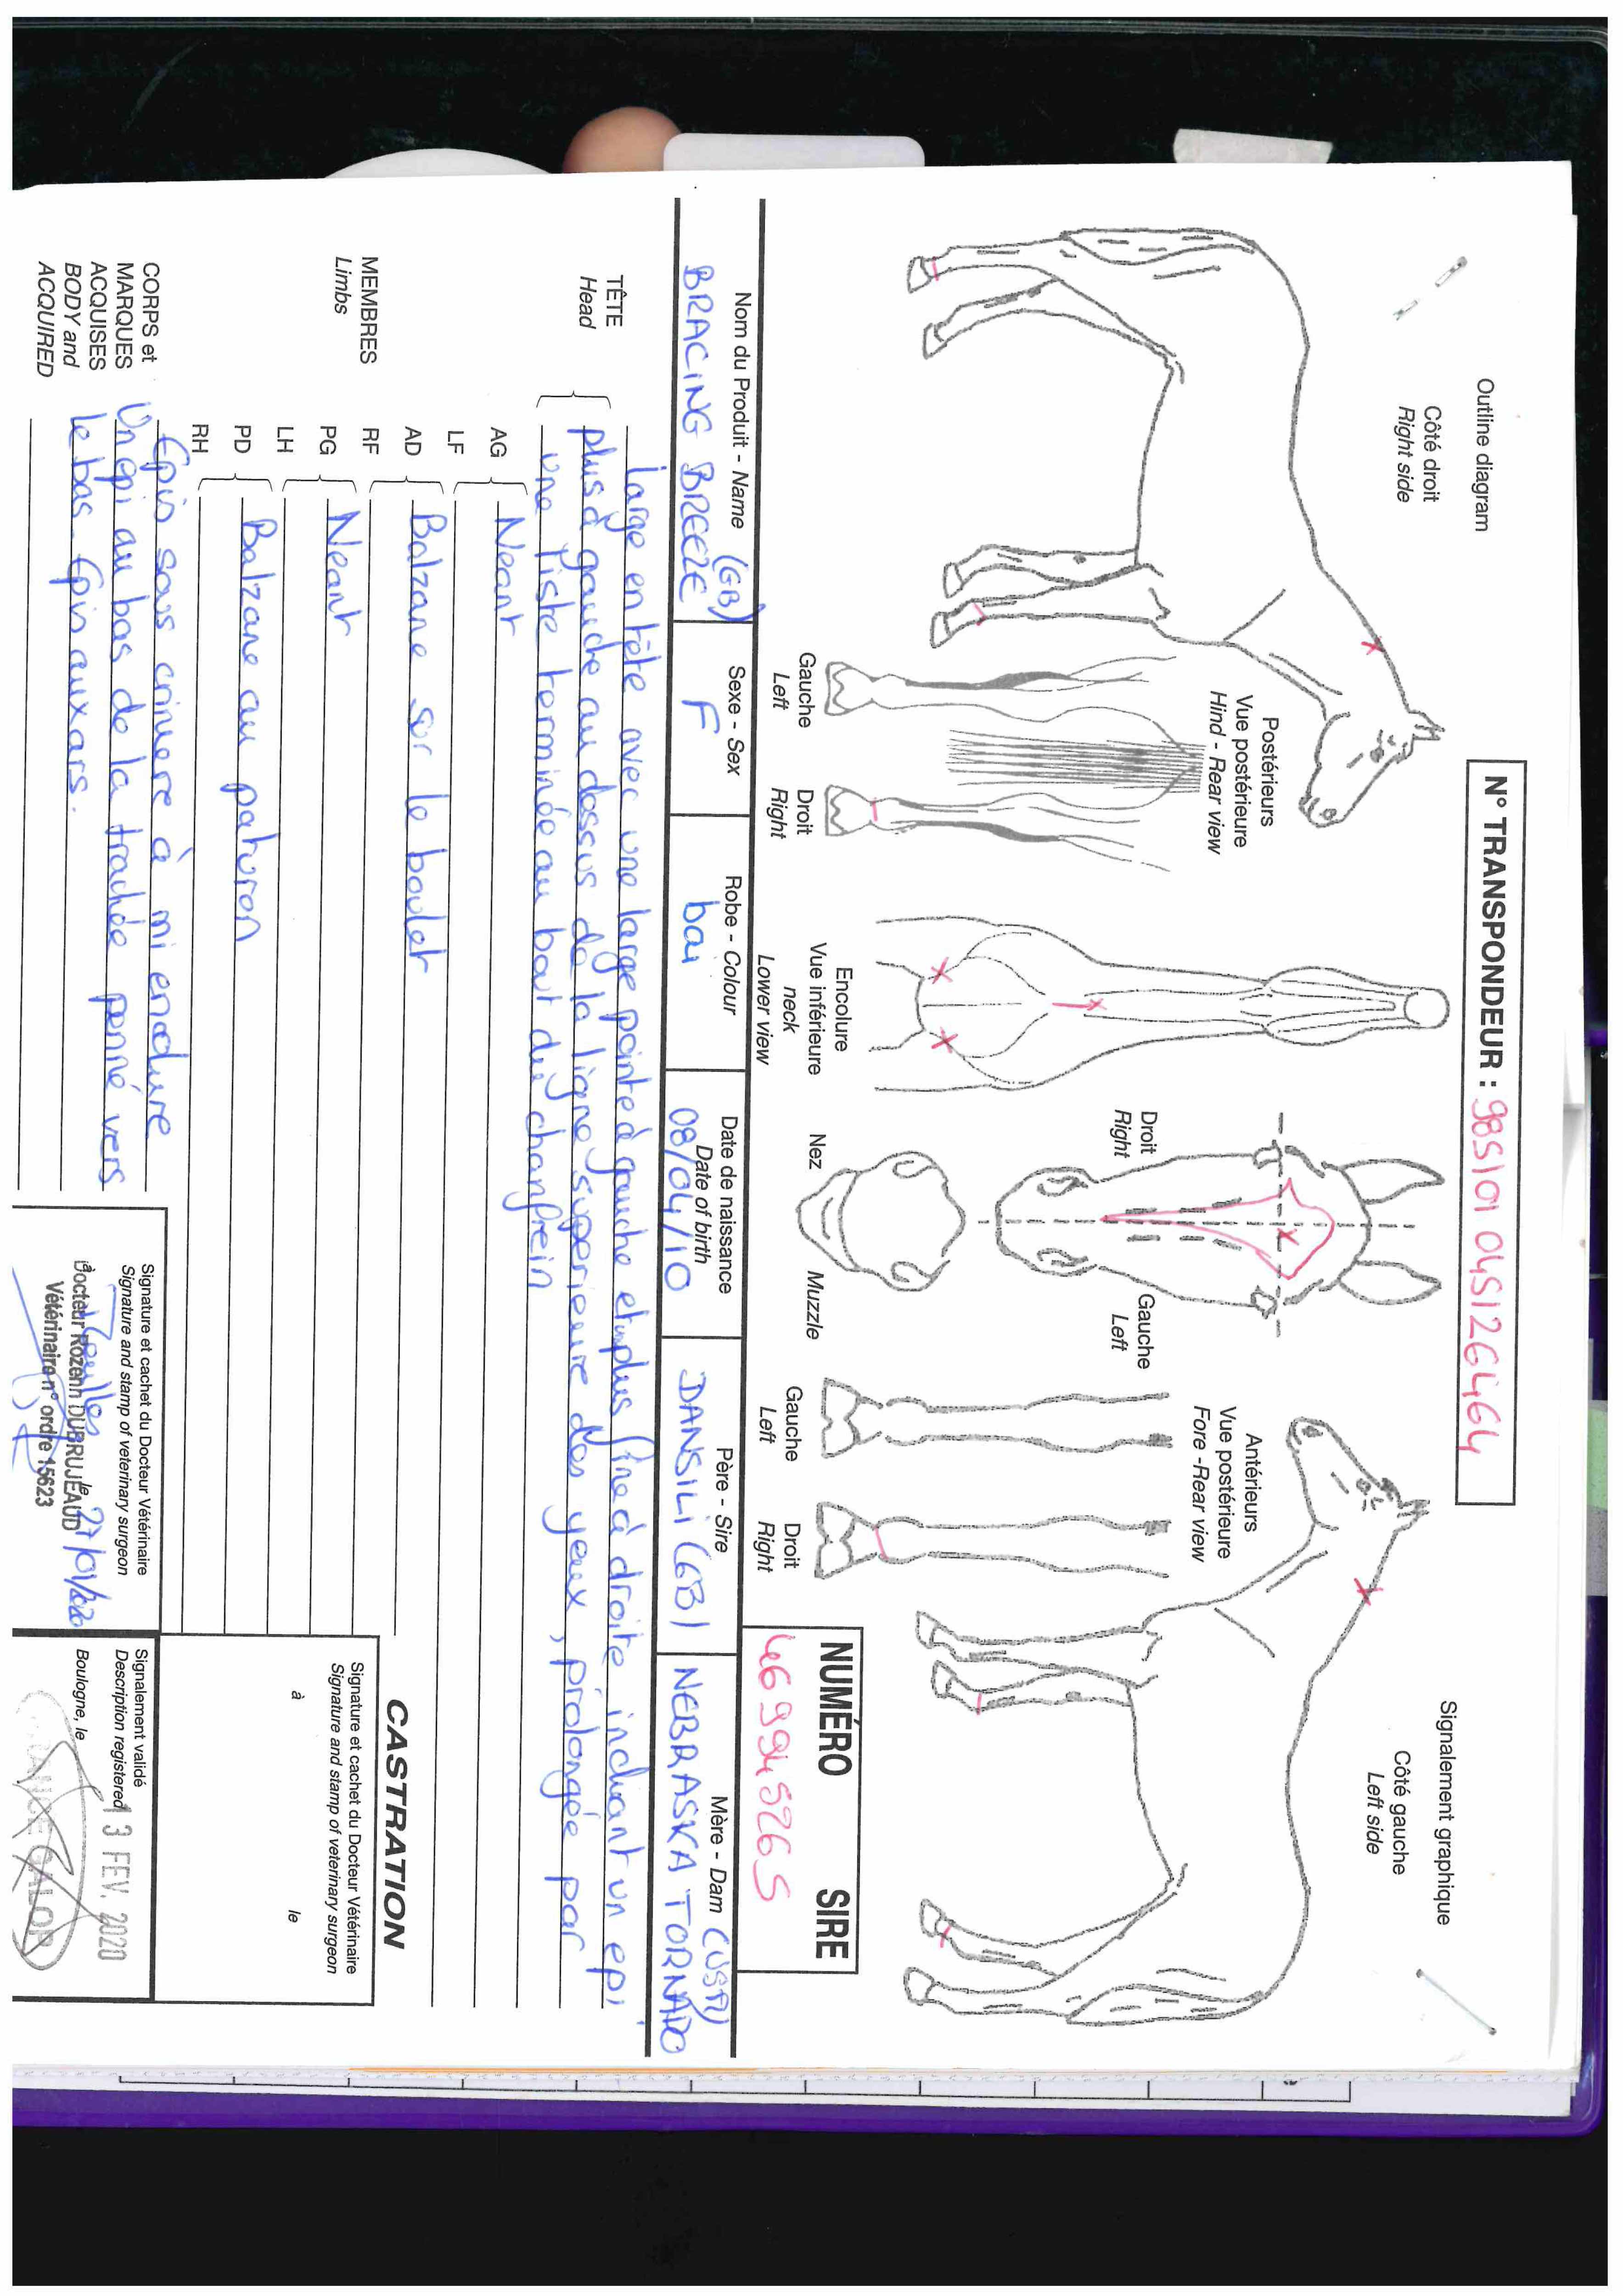 Outline diagram
Côté droit
Right side
N° TRANSPONDEUR : 985101045126464
Signalement graphique
Côté gauche
Left side
Postérieurs
Vue postérieure
Hind - Rear view
Gauche
Left
Droit
Right
Encolure
Vue inférieure
neck
Lower view
Droit
Right
Gauche
Left
Nez
Muzzle
Antérieurs
Vue postérieure
Fore -Rear view
Gauche
Left
Droit
Right
NUMÉRO SIRE
46994526S
Nom du Produit - Name
BRACING BREEZE (GB)
Sexe - Sex
F
Robe - Colour
bai
Date de naissance
Date of birth
08/04/10
Père - Sire
DANSILI (GB)
Mère - Dam
NEBRASKA TORNADO (USA)
TÊTE
Head
Large en tête avec une large pointe à gauche et plus fine à droite incluant un epi
plus à gauche au dessus de la ligne supérieure des yeux, prolongée par
une liste terminée au bout du chanfrein
MEMBRES
Limbs
AG
LF
Neant
AD
RF
Balzane sur le boulet
PG
LH
Neant
PD
RH
Balzane au paturon
CORPS et
MARQUES
ACQUISES
BODY and
ACQUIRED
Epis sous criniere à mi encolure
Un epi au bas de la trachée penné vers
le bas. Epis aux ars.
CASTRATION
Signature et cachet du Docteur Vétérinaire
Signature and stamp of veterinary surgeon
à le
Signature et cachet du Docteur Vétérinaire
Signature and stamp of veterinary surgeon
à le 27/01/2020
Docteur Rozenn DUBRUJEAUD
Vétérinaire n° ordre 15623
Signalement validé
Description registered
Boulogne, le 13 FEV. 2020
FRANCE GALOP